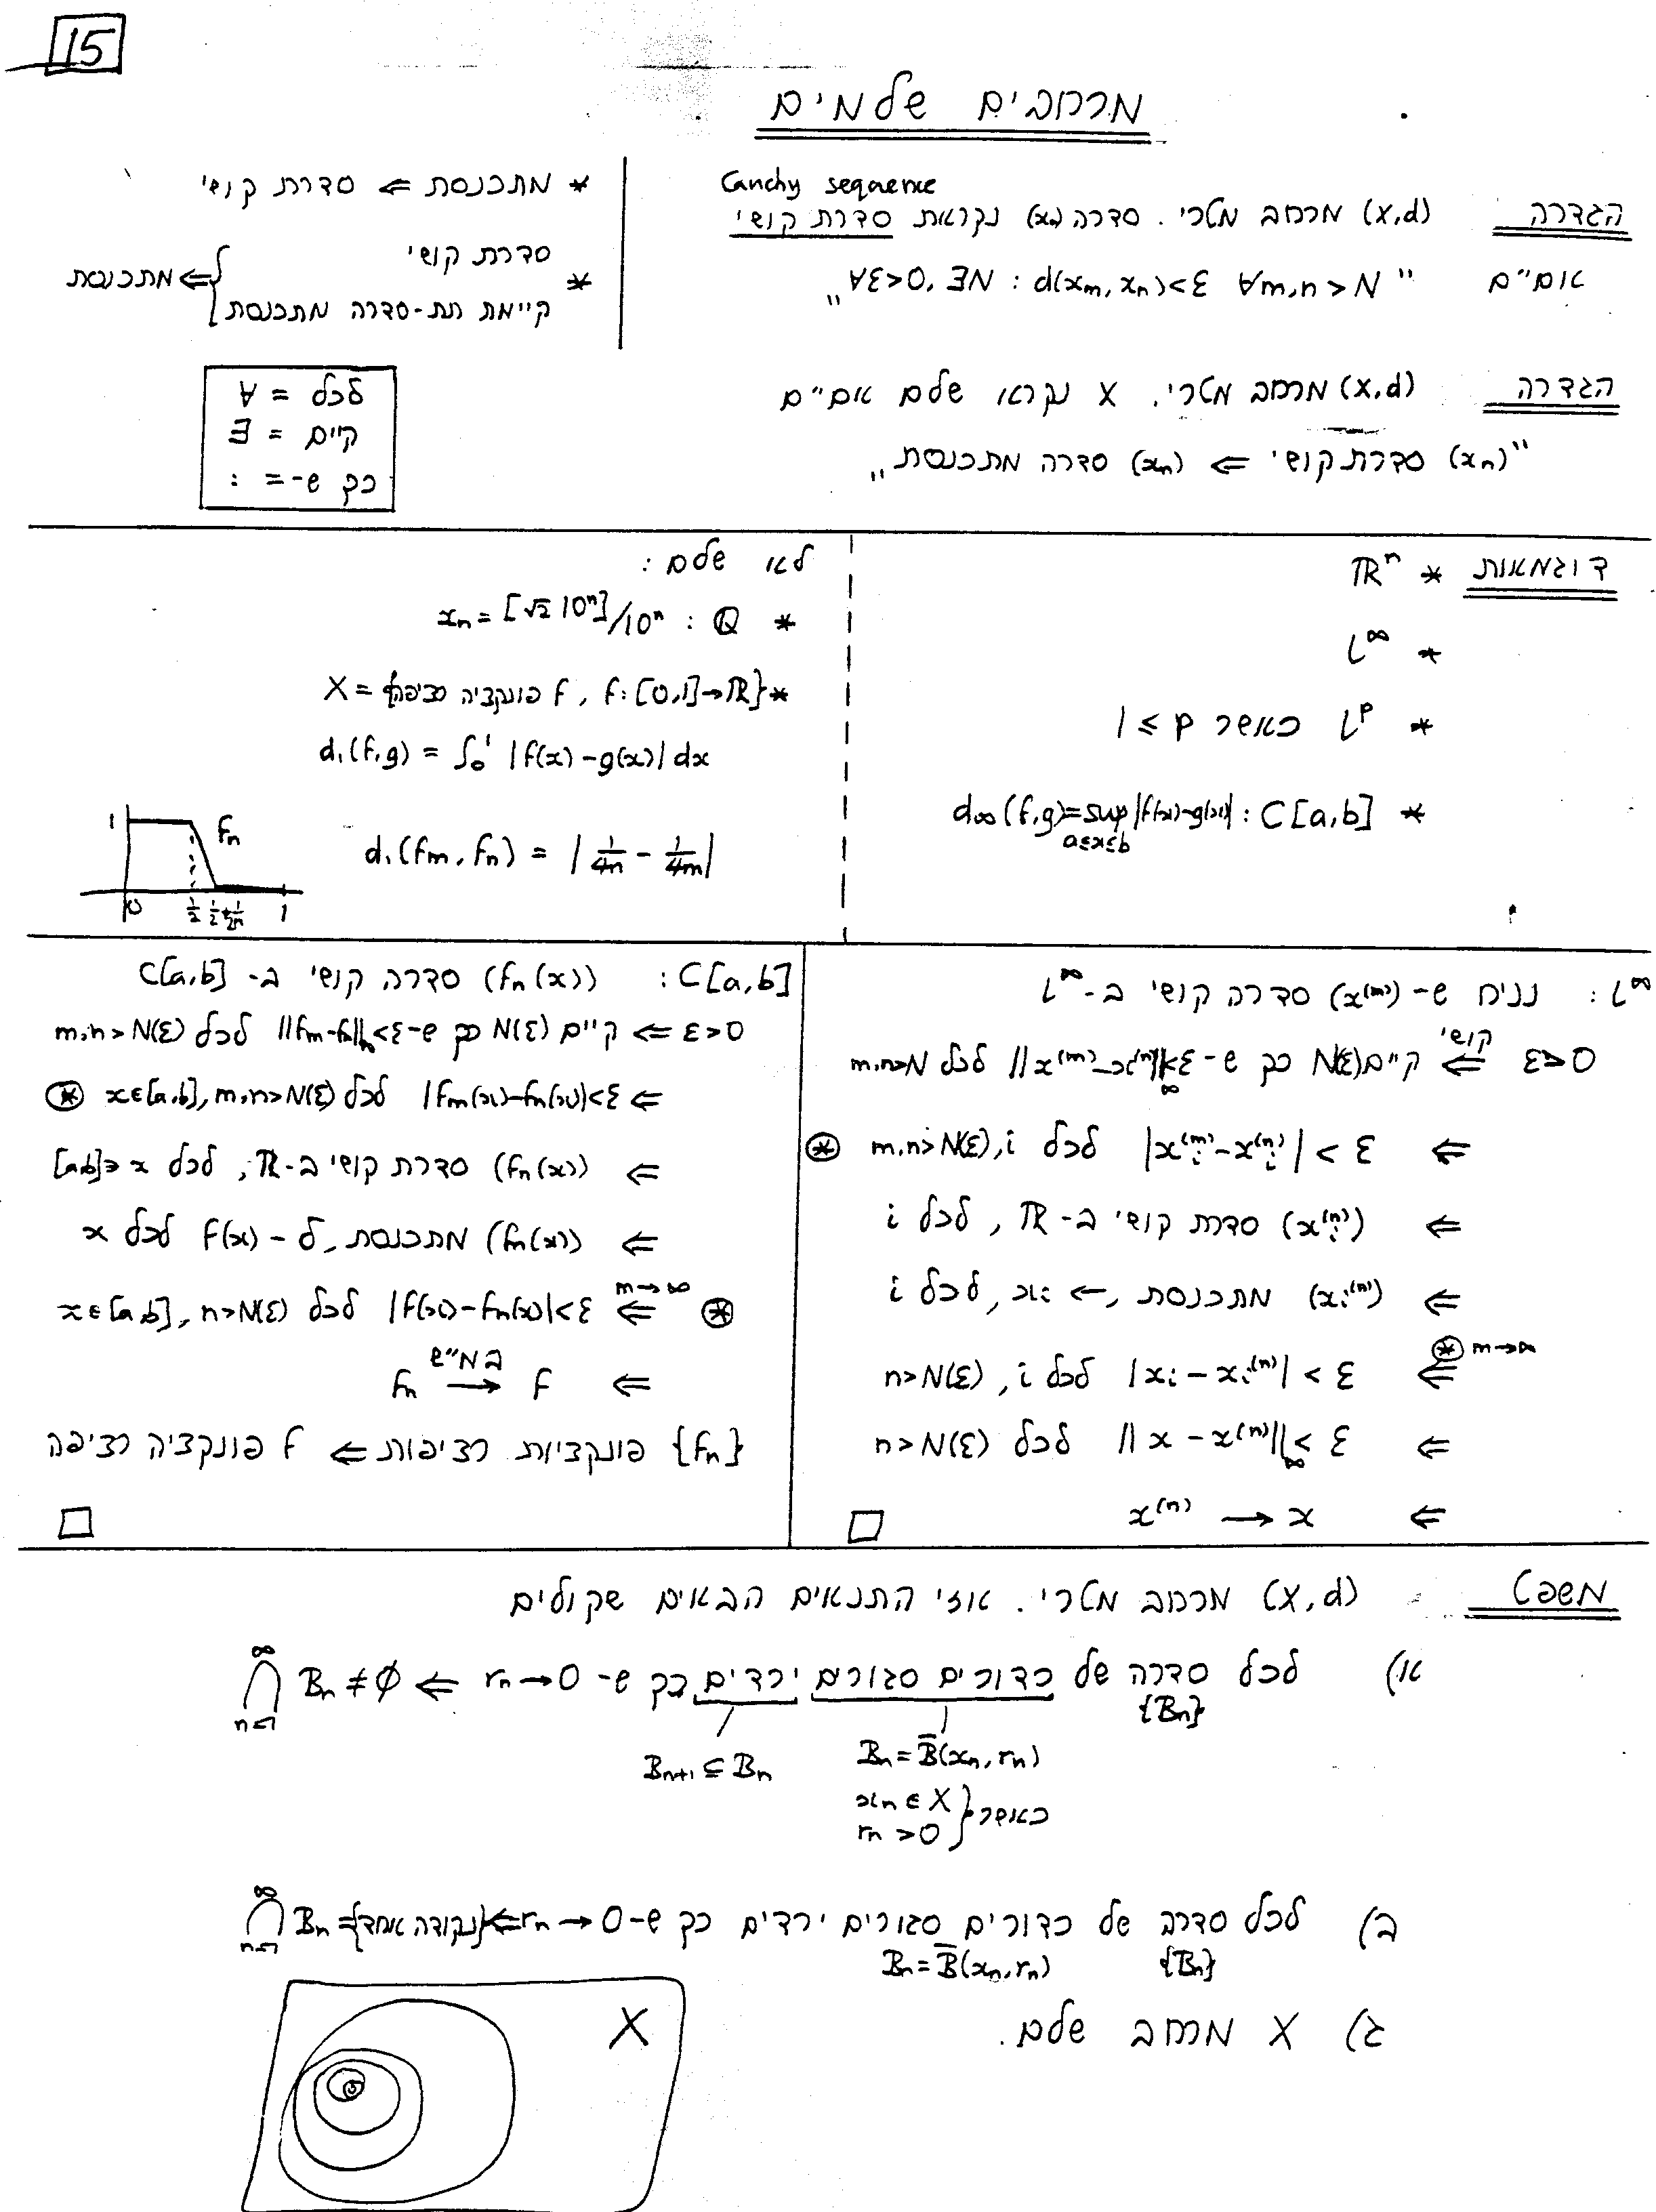 15
מרחבים שלמים
Cauchy sequence
הגדרה (X,d) מרחב מטרי. סדרה (xₙ) נקראת סדרת קושי
אם"ם "∀ε>0, ∃N : d(xₘ, xₙ)<ε ∀m,n > N"
* מתכנסת ⇐ סדרת קושי
* סדרת קושי
קיימת תת-סדרה מתכנסת } ⇐ מתכנסת
הגדרה (X,d) מרחב מטרי. X נקרא שלם אם"ם
"(xₙ) סדרת קושי ⇐ (xₙ) סדרה מתכנסת"
לכל = ∀
קיים = ∃
כך ש- = :
דוגמאות * ℝⁿ
* l^∞
* l^p כאשר 1 ≤ p
* C[a,b] : d∞(f,g)=sup|f(x)-g(x)|
a≤x≤b
לא שלם :
* ℚ : xₙ = [√2 10ⁿ]/10ⁿ
* X = {f פונקציה רציפה, f:[0,1]→ℝ}
d₁(f,g) = ∫₀¹ |f(x)-g(x)| dx
d₁(fₘ, fₙ) = |1/4n - 1/4m|
1 fₙ
0 1/2 1/2+1/2n 1
l^∞ : נניח ש- (x^(m)) סדרה קושי ב- l^∞
ε>0 ⇐ קושי קיים N(ε) כך ש- ||x^(m) - x^(n)||∞ < ε לכל m,n>N
⇐ |xᵢ^(m) - xᵢ^(n)| < ε לכל m,n>N(ε), i ⊛
⇐ (xᵢ^(n)) סדרת קושי ב- ℝ, לכל i
⇐ (xᵢ^(n)) מתכנסת, → xᵢ, לכל i
⊛ m→∞
⇐ |xᵢ - xᵢ^(n)| < ε לכל i, n>N(ε)
⇐ ||x - x^(n)||∞ < ε לכל n>N(ε)
⇐ x^(n) → x
□
C[a,b] : (fₙ(x)) סדרה קושי ב- C[a,b]
ε>0 ⇐ קיים N(ε) כך ש- ||fₘ-fₙ||<ε לכל m,n>N(ε)
⇐ |fₘ(x)-fₙ(x)|<ε לכל x∈[a,b], m,n>N(ε) ⊛
⇐ (fₙ(x)) סדרת קושי ב-ℝ, לכל x∈[a,b]
⇐ (fₙ(x)) מתכנסת, ל- f(x) לכל x
⊛ ⇐ m→∞ |f(x)-fₙ(x)|<ε לכל x∈[a,b], n>N(ε)
⇐ fₙ → f במ"ש
{fₙ} פונקציות רציפות ⇐ f פונקציה רציפה
□
משפט (X,d) מרחב מטרי. אזי התנאים הבאים שקולים
א) לכל סדרה של כדורים סגורים יורדים כך ש- rₙ→0 ⇐ ⋂_{n=1}^∞ Bₙ ≠ ∅
{Bₙ}
Bₙ = B̄(xₙ, rₙ)
כאשר { xₙ ∈ X
rₙ > 0
Bₙ₊₁ ⊆ Bₙ
ב) לכל סדרה של כדורים סגורים ירדים כך ש- rₙ→0 ⇐ ⋂_{n=1}^∞ Bₙ = {נקודה אחד}
{Bₙ} Bₙ = B̄(xₙ, rₙ)
ג) X מרחב שלם.
X